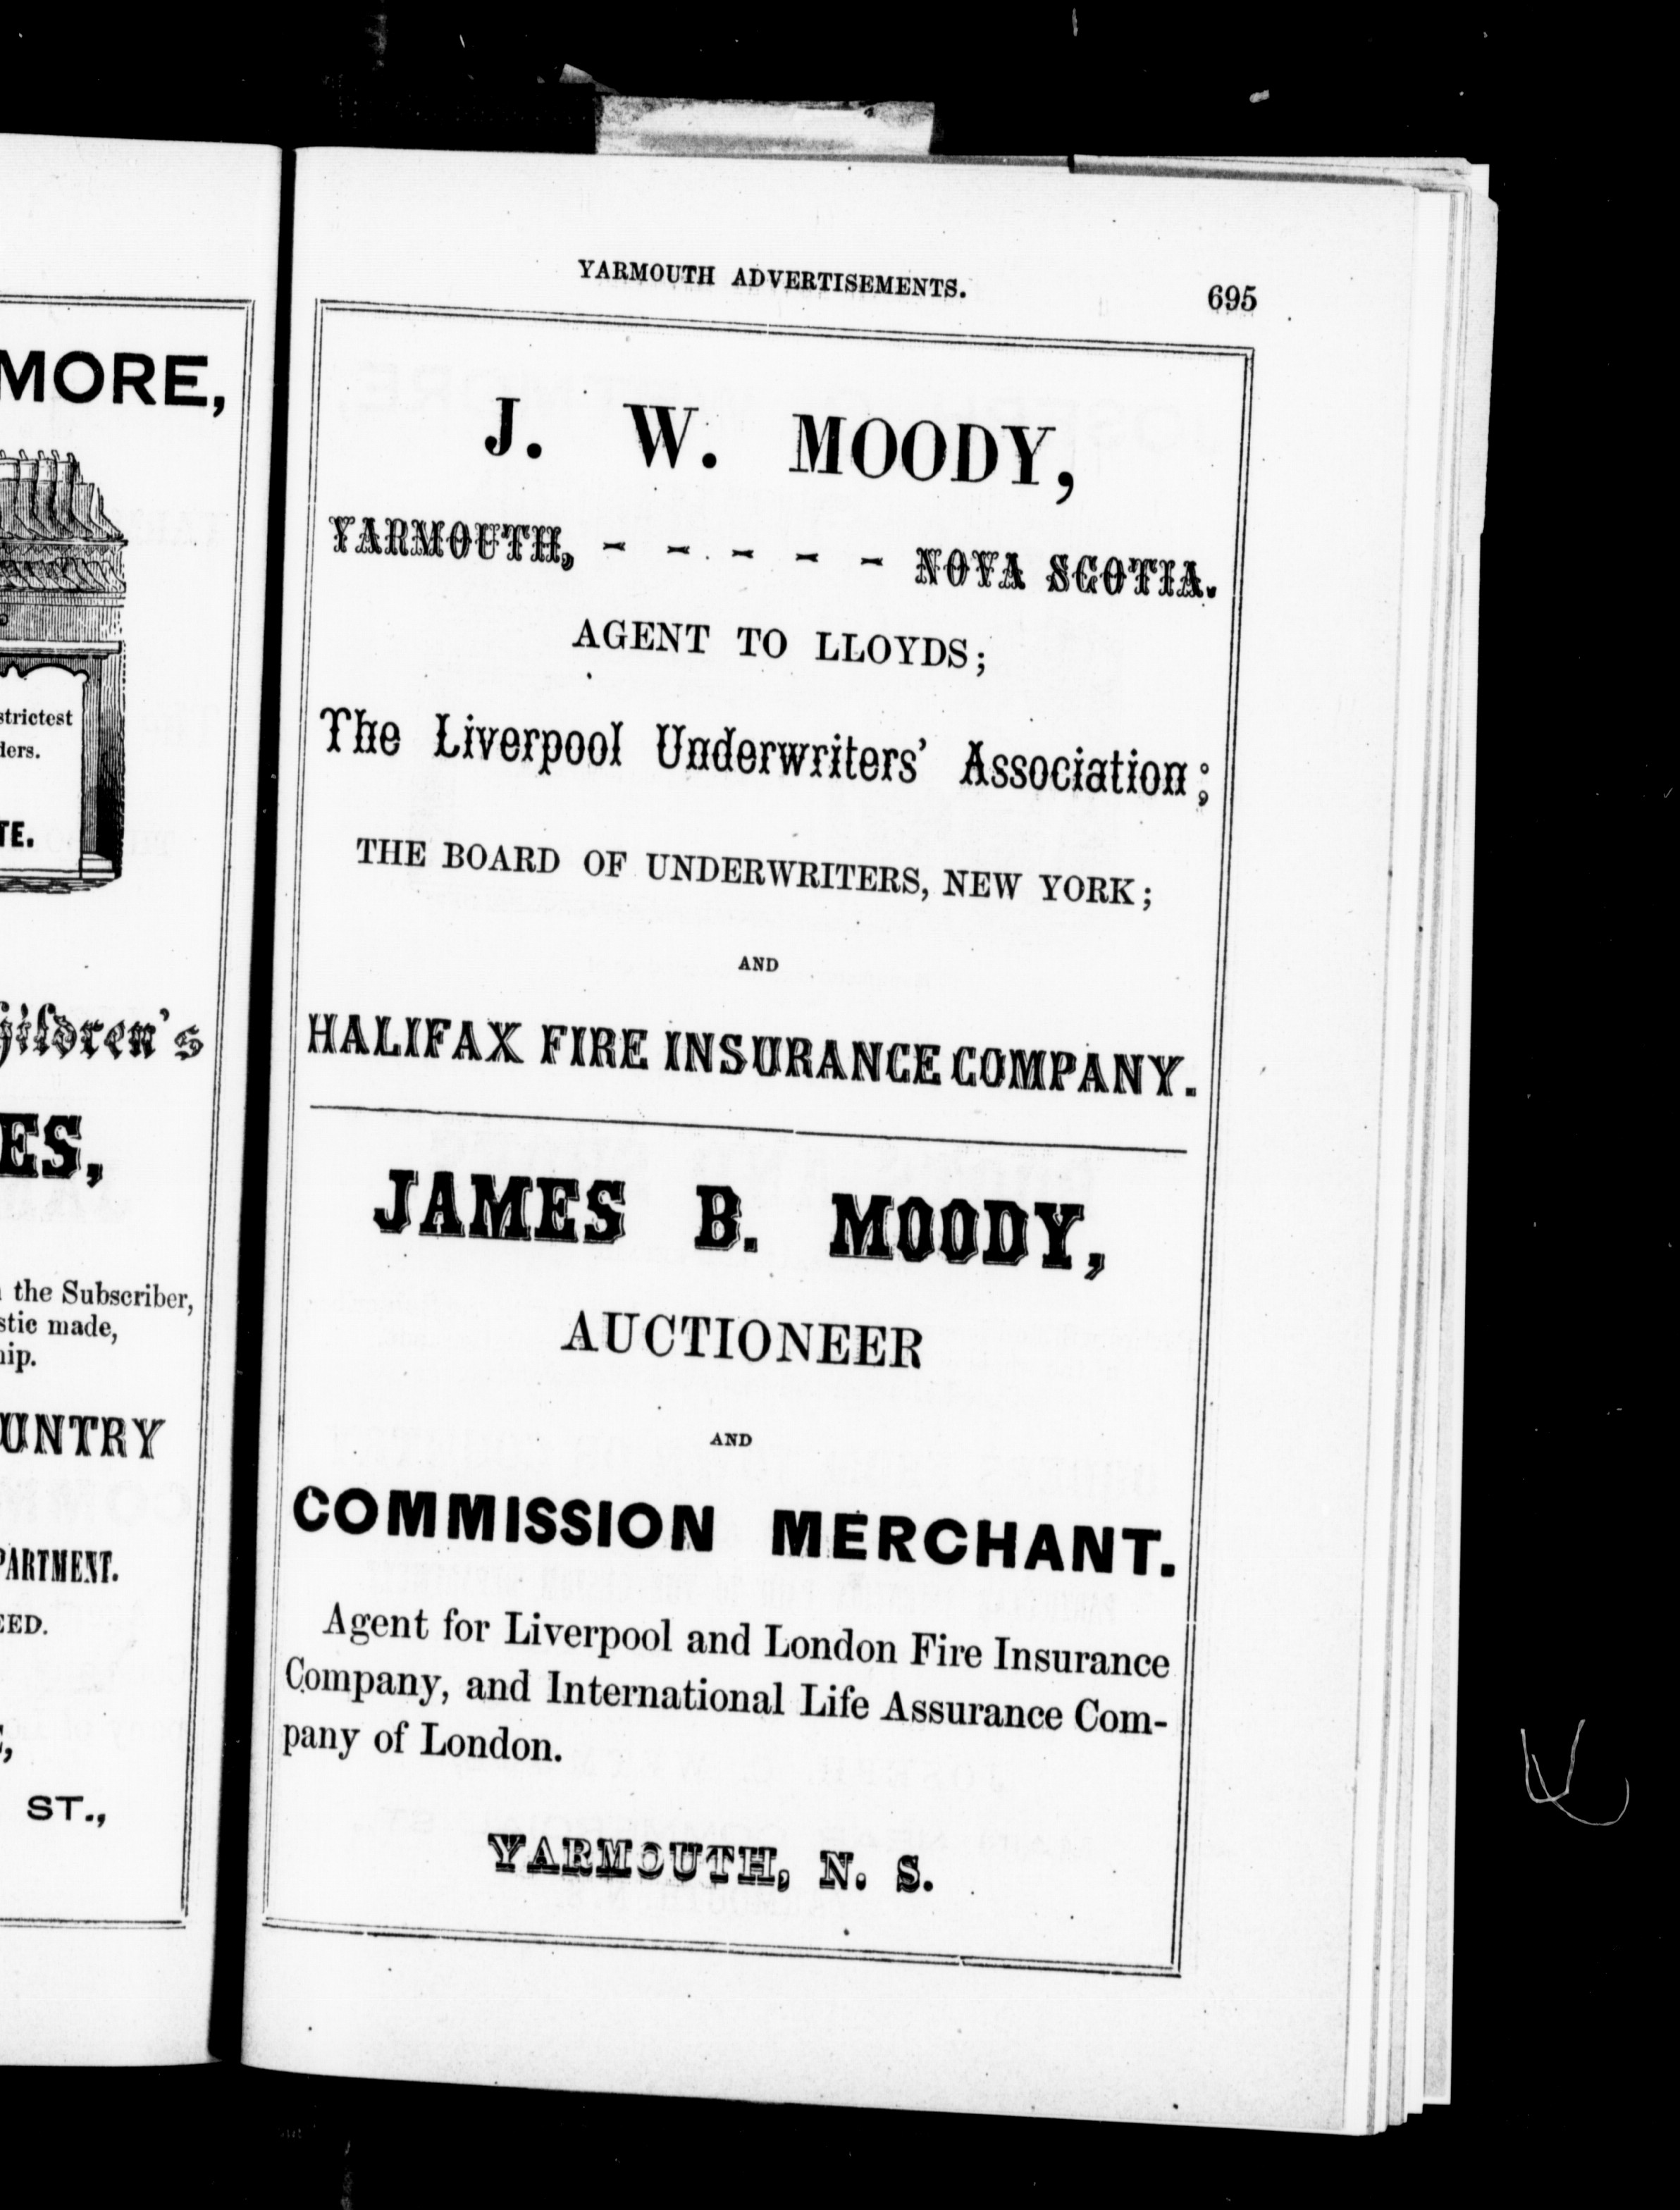 MORE,
strictest
TE.
ES,
the Subscriber,
made,
ST.,
YARMOUTH ADVERTISEMENTS.
695
J. W. MOODY,
YARMOUTH, - - - - - NOVA SCOTIA.
AGENT TO LLOYDS;
The Liverpool Underwriters' Association;
THE BOARD OF UNDERWRITERS, NEW YORK;
AND
HALIFAX FIRE INSURANCE COMPANY.
JAMES B. MOODY,
AUCTIONEER
AND
COMMISSION MERCHANT.
Agent for Liverpool and London Fire Insurance
Company, and International Life Assurance Com-
pany of London.
YARMOUTH, N. S.